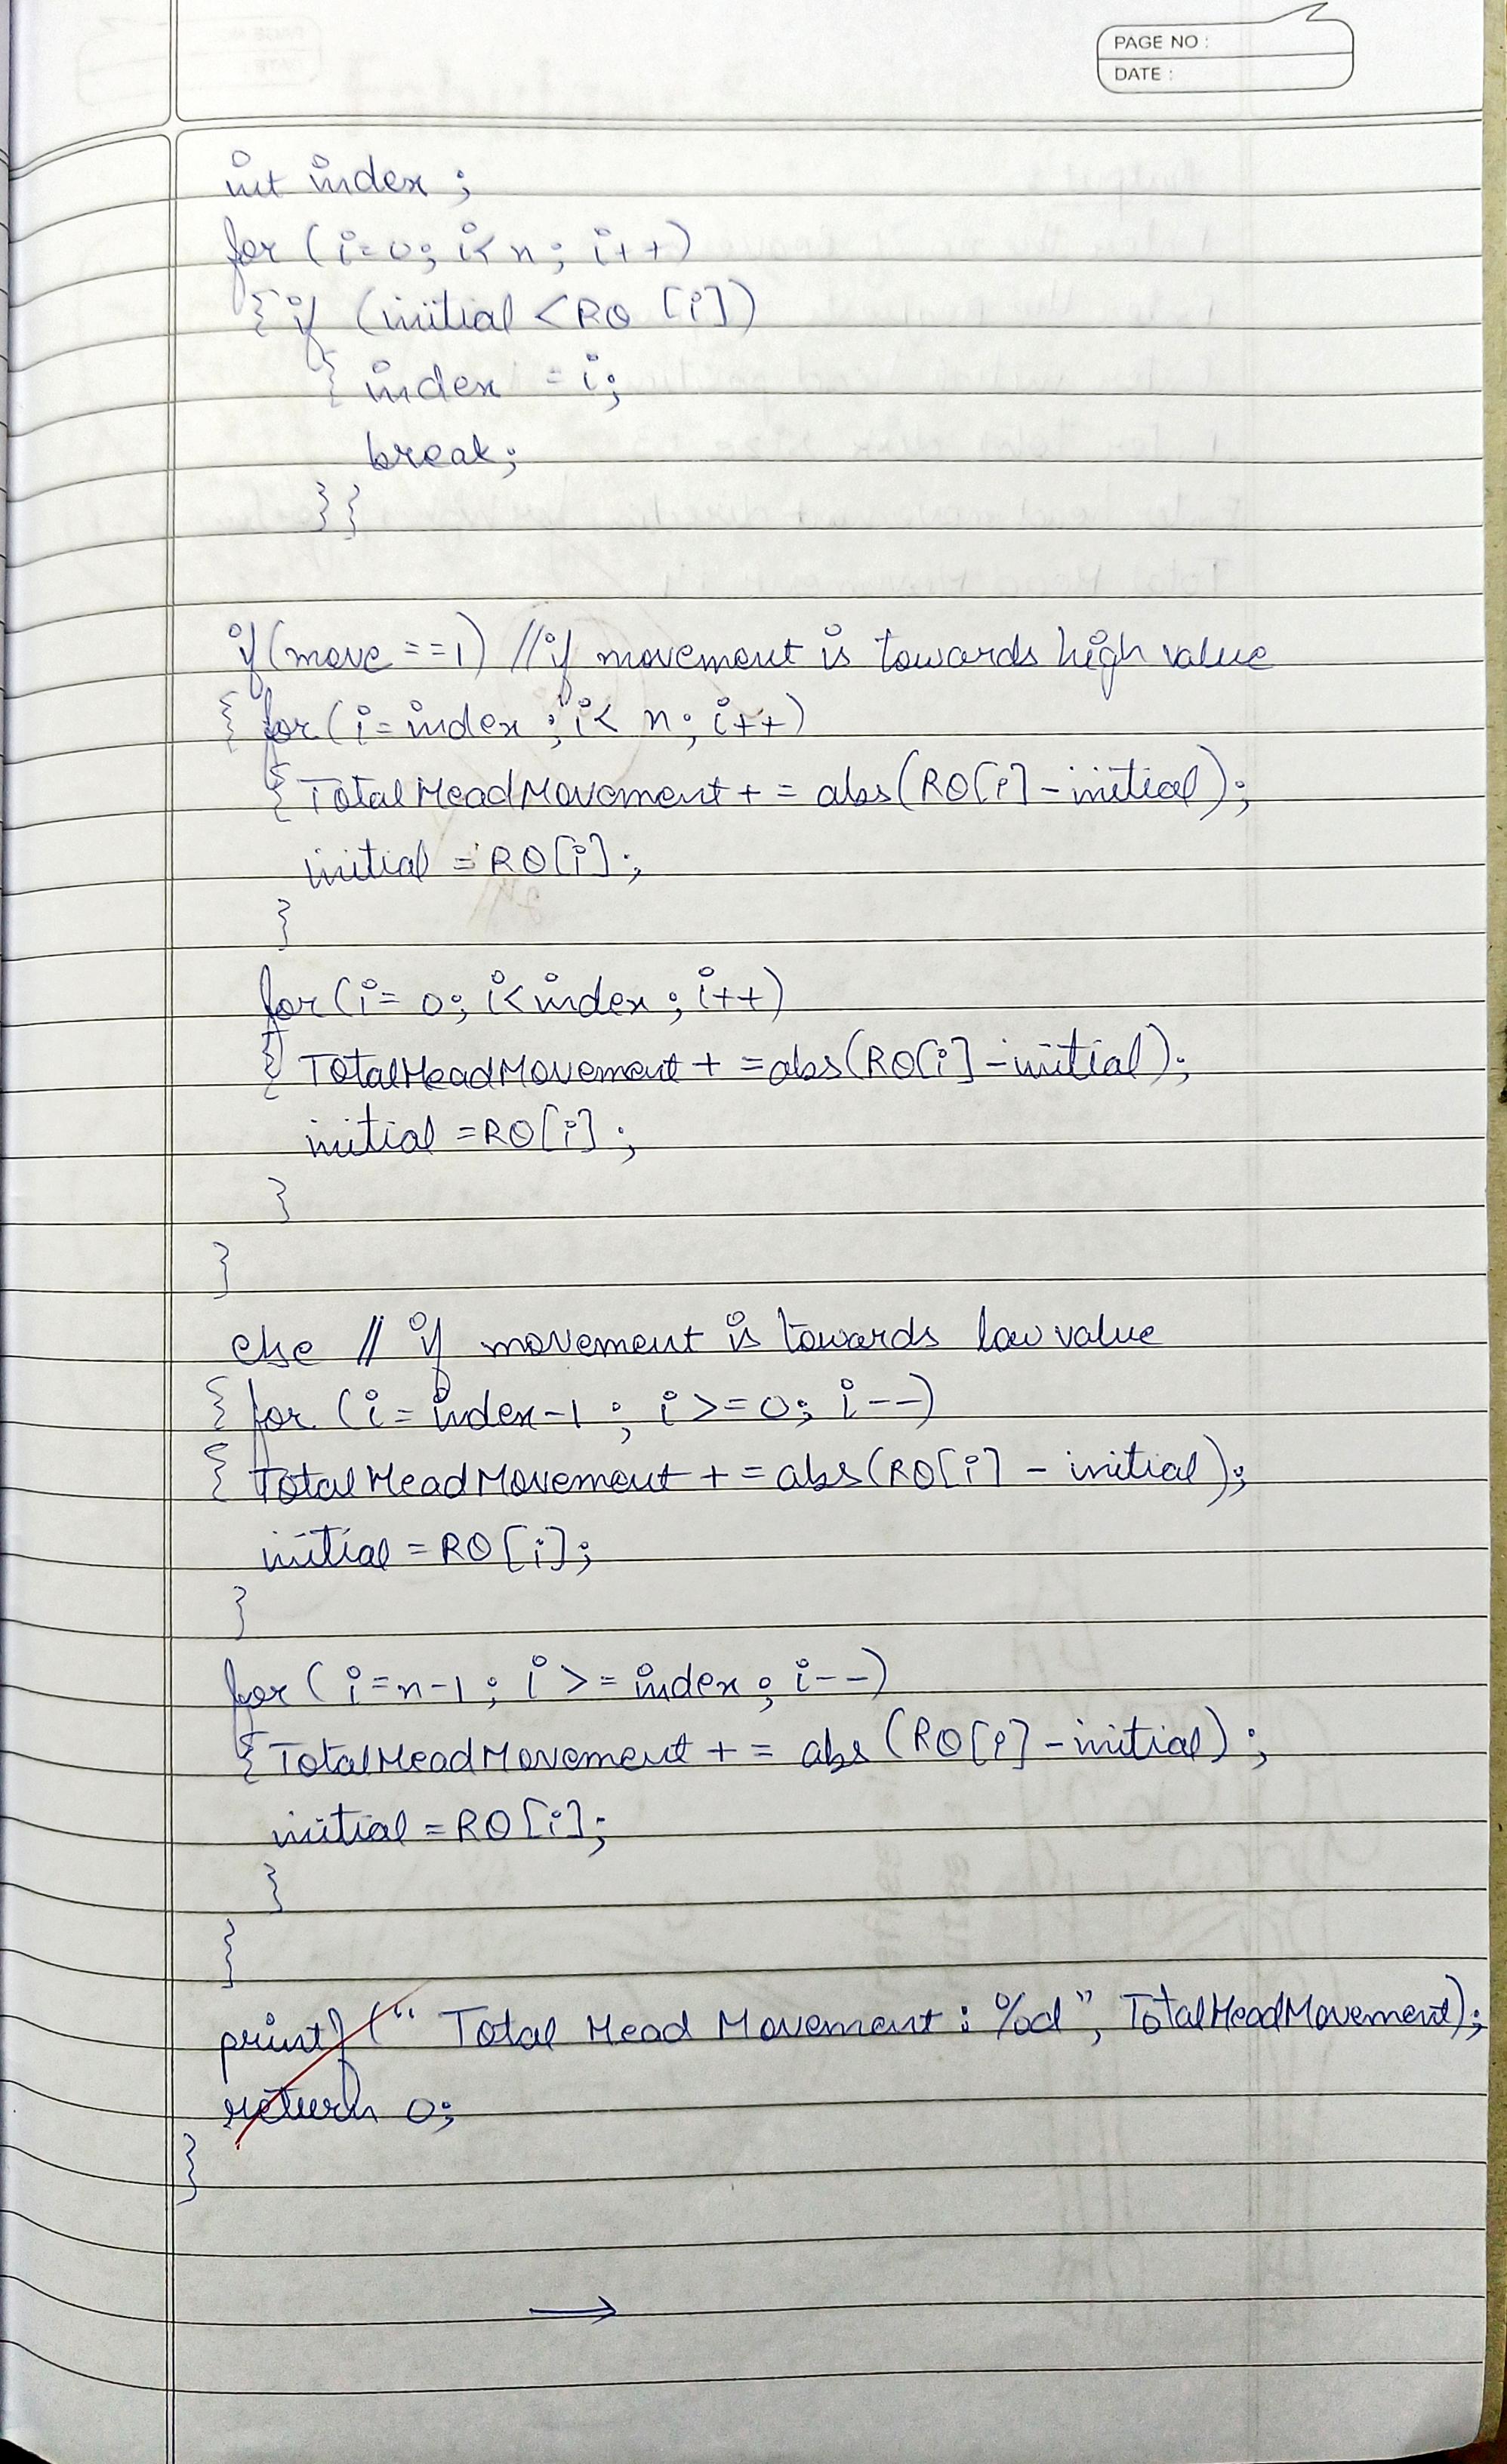 PAGE NO :
DATE :
int index ;
for ( i=0; i< n ; i++)
{ if (initial < RQ [i])
{ index = i;
break;
}}
if(move ==1) //if movement is towards high value
{ for(i=index ; i< n ; i++)
{ TotalHeadMovement += abs(RQ[i]-initial);
initial = RQ[i];
}
for(i= 0; i<index ; i++)
{ TotalHeadMovement + =abs(RQ[i]-initial);
initial =RQ[i] ;
}
}
else // if movement is towards low value
{ for (i=index-1 ; i>=0; i--)
{ TotalHeadMovement + =abs(RQ[i] - initial);
initial = RQ[i];
}
for ( i=n-1 ; i >=index ; i--)
{ TotalHeadMovement + = abs (RQ[i]-initial) ;
initial = RQ[i];
}
}
printf (“ Total Head Movement : %d”, TotalHeadMovement);
return 0;
}